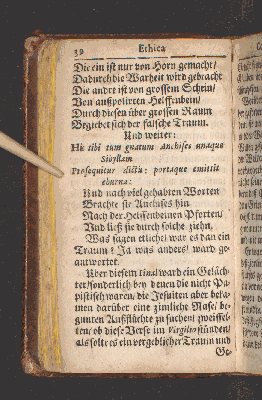 39 Ethica
Die ein ist nur von Horn gemacht/
Dadurch die Warheit wird gebracht
Die andre ist von grossem Schein/
Von außpolirten Helffenbein/
Durch diesen über grossen Raum
Begiebet sich der falsche Traum.
Und weiter:
His ibi tum gnatum Anchises unaque
Sibyllam
Prosequitur dictis: portaque emittit
eburna:
Und nach viel gehabten Worten
Brachte sie Anchises hin
Nach der Helffenbeinen Pforten/
Und ließ sie durch solche ziehn,
Was sagen etliche/ war es dan ein
Traum? Ja was anders/ ward ge-
antwortet.
Uber diesem ward ein Geläch-
ter/ sonderlich bey denen die nicht Pa-
pistisch waren, die Jesuiten aber beka-
men darüber eine zimliche Nase/ be-
gunten Außflüchte zu suchen/ zweiffel-
ten/ ob diese Verse im Virgilio stünden/
als solte es ein vergeblicher Traum und
Ge-